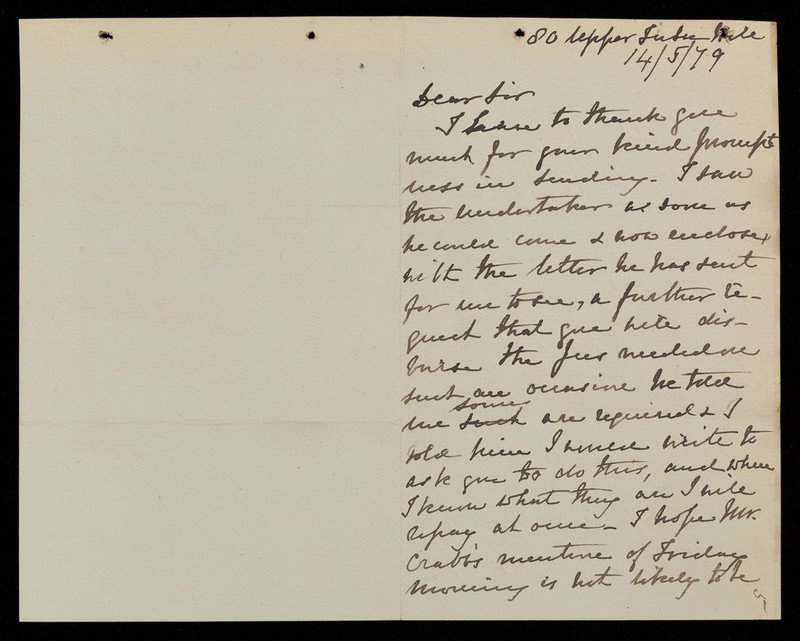 80 Upper Tulse Hill
14/5/79
Dear Sir
I have to thank you
much for your kind prompt
ness in sending. I saw
the undertaker as soon as
he could come & now enclose,
with the letter he has sent
for me to see, a further re-
quest that you will dis-
burse the fees needed on
such an occasion he told
me such some are required & I
told him I would write to
ask you to do this, and when
I know what they are I will
repay at once – I hope Mr.
Crabb's mention of Friday
morning is not likely to be